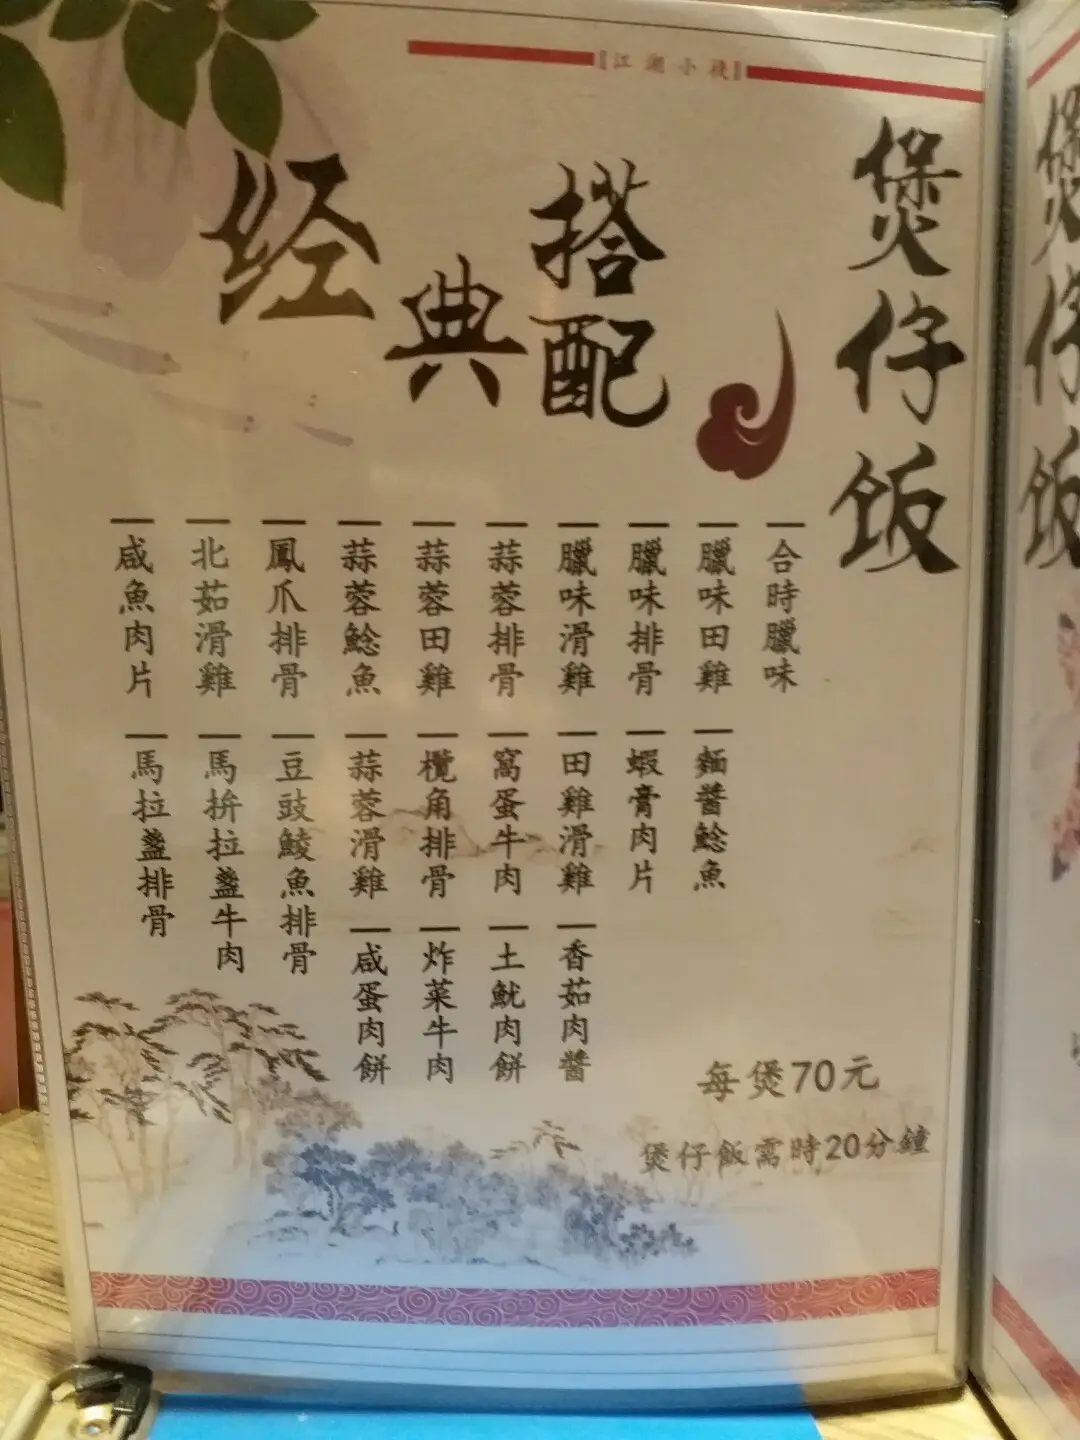 江湖小棧
煲仔饭
经典搭配
合時臘味
臘味田雞
臘味排骨
臘味滑雞
蒜蓉排骨
蒜蓉田雞
蒜蓉鯰魚
鳳爪排骨
北茹滑雞
咸魚肉片
麵醬鯰魚
蝦膏肉片
田雞滑雞
窩蛋牛肉
欖角排骨
蒜蓉滑雞
豆豉鯪魚排骨
馬拚拉盞牛肉
馬拉盞排骨
香茹肉醬
土魷肉餅
炸菜牛肉
咸蛋肉餅
每煲70元
煲仔飯需時20分鐘
煲仔饭